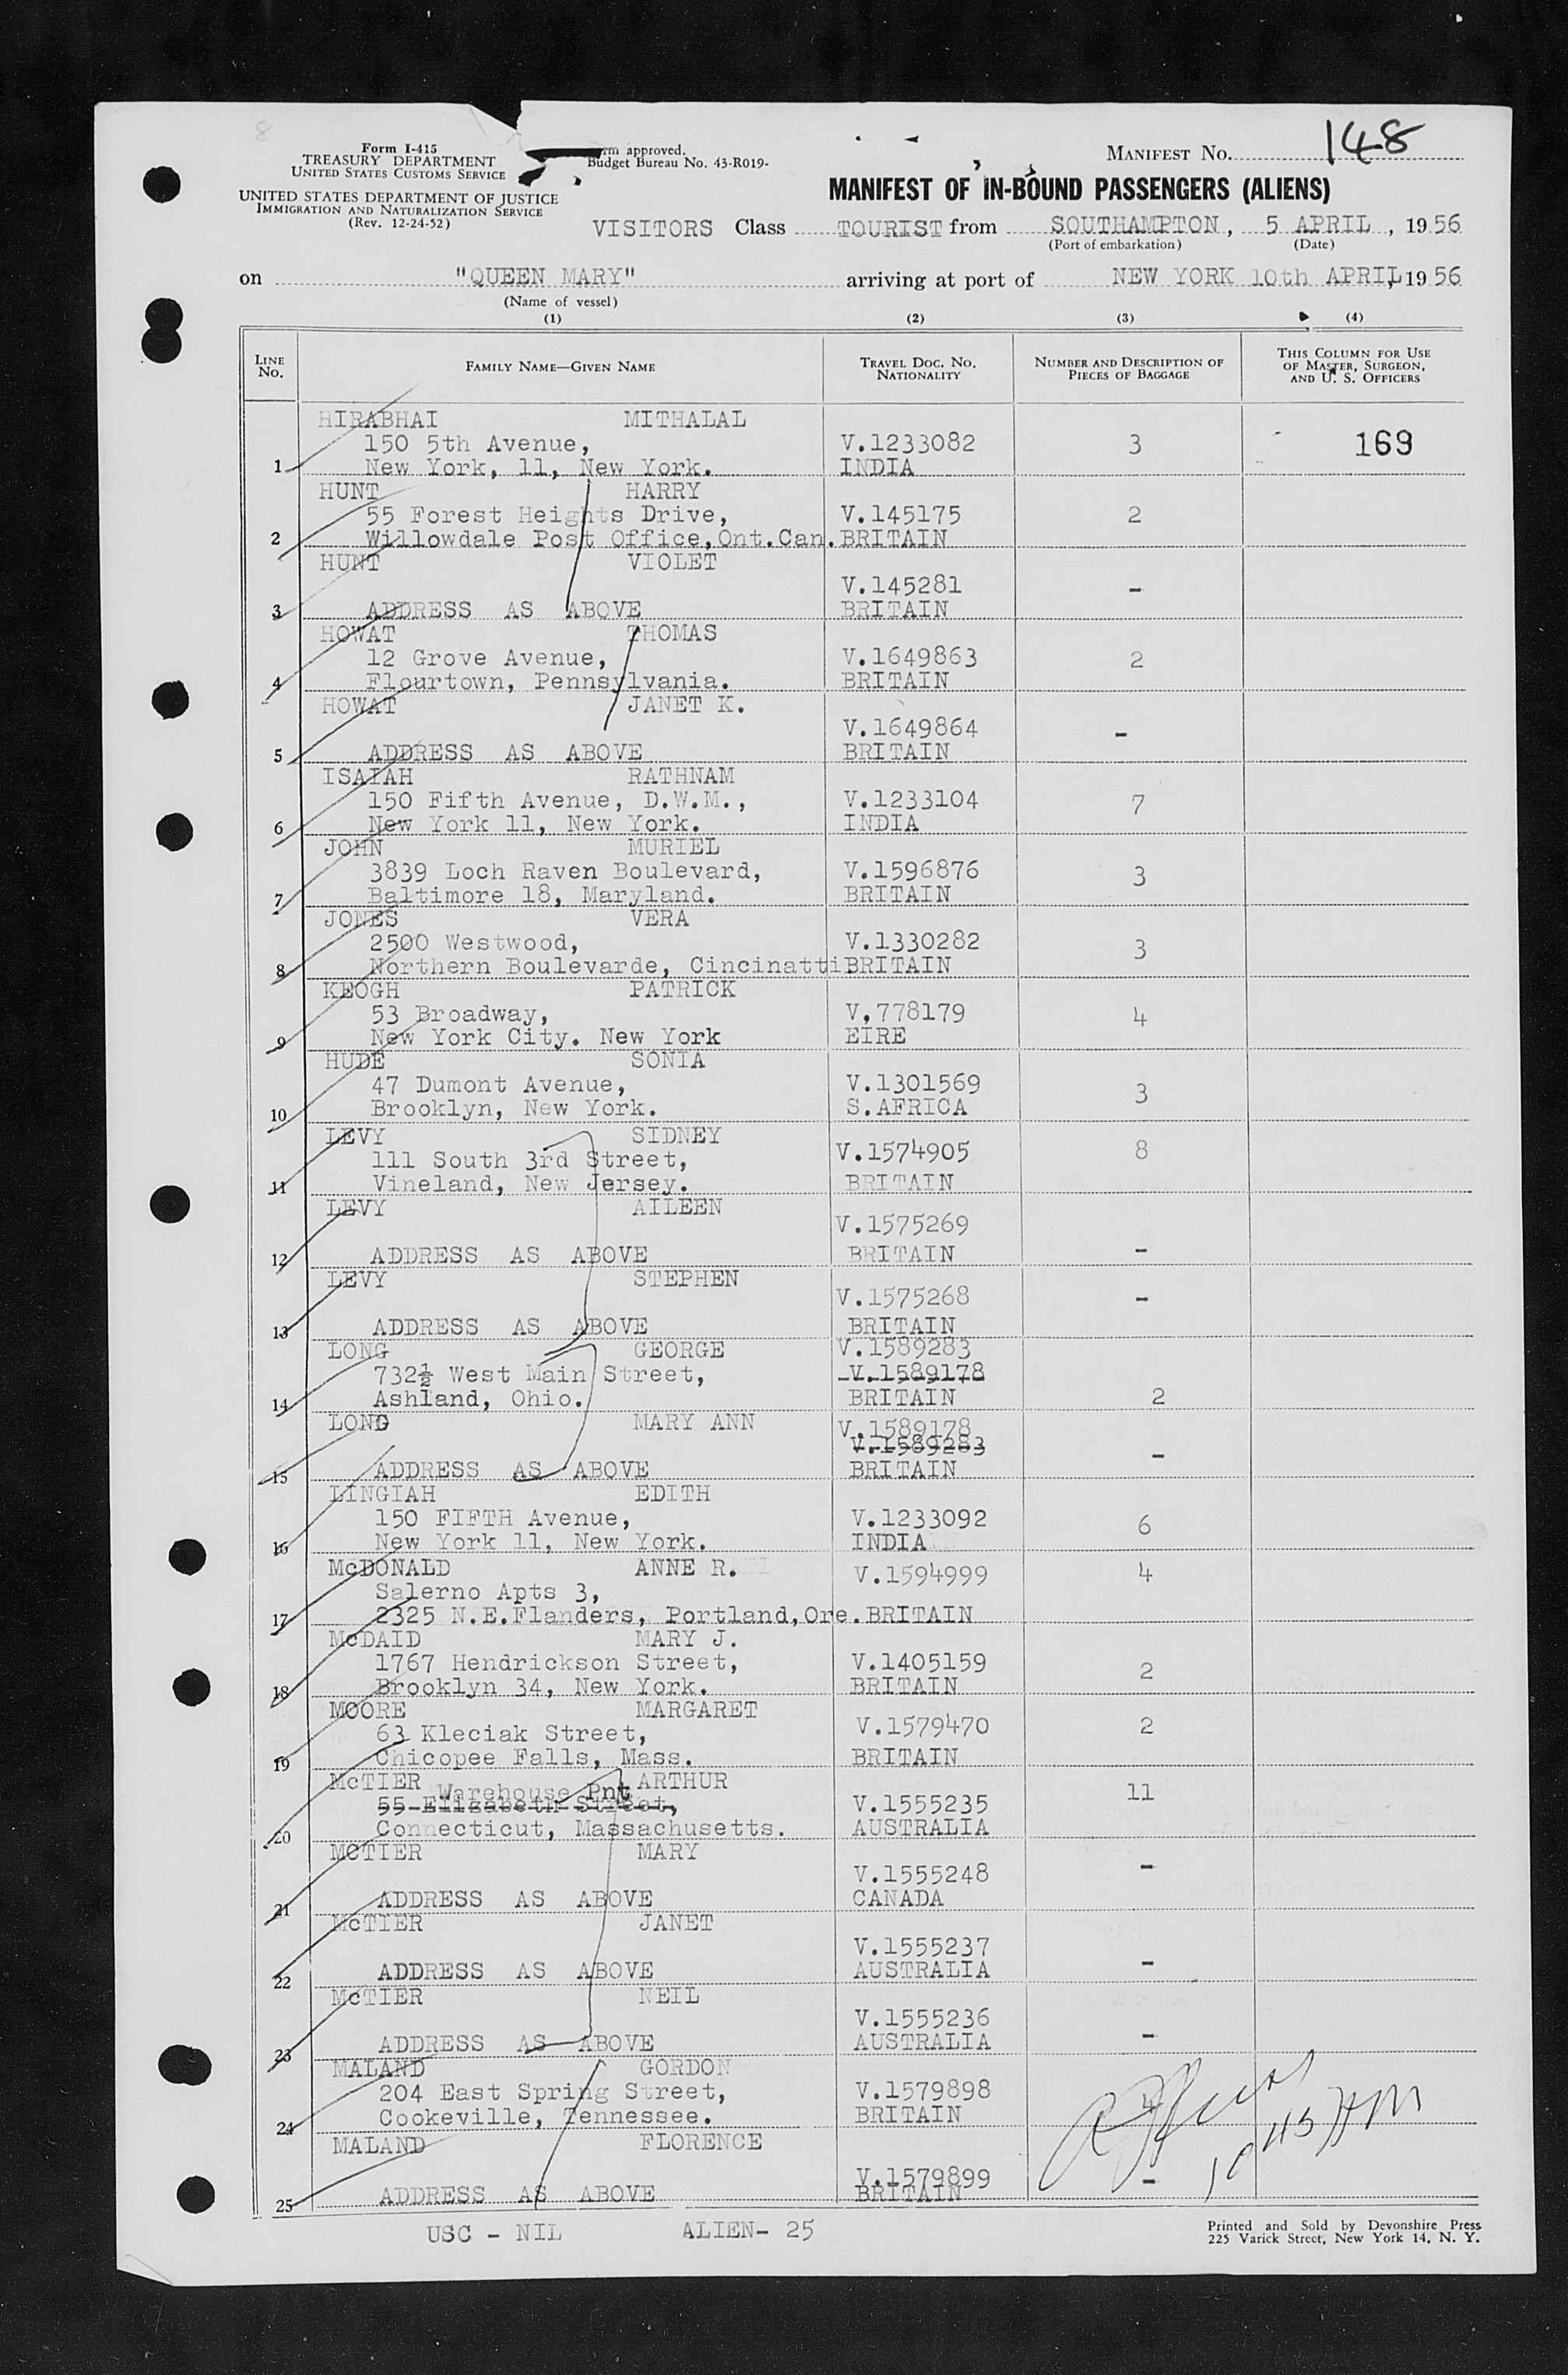 148
Form I-415
TREASURY DEPARTMENT
UNITED STATES CUSTOMS SERVICE
UNITED STATES DEPARTMENT OF JUSTICE
IMMIGRATION AND NATURALIZATION SERVICE
(Rev. 12-24-52)
approved.
Budget Bureau No. 43-R019-
MANIFEST No.
MANIFEST OF IN-BOUND PASSENGERS (ALIENS)
VISITORS Class TOURIST from SOUTHAMPTON, 5 APRIL, 1956
(Port of embarkation) (Date)
on "QUEEN MARY" arriving at port of NEW YORK 10th APRIL, 1956
(Name of vessel)
(1) (2) (3) (4)
LINE No. FAMILY NAME—GIVEN NAME TRAVEL DOC. NO. NATIONALITY NUMBER AND DESCRIPTION OF PIECES OF BAGGAGE THIS COLUMN FOR USE OF MASTER, SURGEON, AND U. S. OFFICERS
HIRABHAI MITHALAL
150 5th Avenue, V.1233082 3 169
1 New York, 11, New York. INDIA
HUNT HARRY
55 Forest Heights Drive, V.145175 2
2 Willowdale Post Office,Ont.Can. BRITAIN
HUNT VIOLET
V.145281 -
3 ADDRESS AS ABOVE BRITAIN
HOWAT THOMAS
12 Grove Avenue, V.1649863 2
4 Flourtown, Pennsylvania. BRITAIN
HOWAT JANET K.
V.1649864 -
5 ADDRESS AS ABOVE BRITAIN
ISAIAH RATHNAM
150 Fifth Avenue, D.W.M., V.1233104 7
6 New York 11, New York. INDIA
JOHN MURIEL
3839 Loch Raven Boulevard, V.1596876 3
7 Baltimore 18, Maryland. BRITAIN
JONES VERA
2500 Westwood, V.1330282 3
8 Northern Boulevarde, Cincinatti BRITAIN
KEOGH PATRICK
53 Broadway, V,778179 4
9 New York City. New York EIRE
HUDE SONIA
47 Dumont Avenue, V.1301569 3
10 Brooklyn, New York. S.AFRICA
LEVY SIDNEY
111 South 3rd Street, V.1574905 8
11 Vineland, New Jersey. BRITAIN
LEVY AILEEN
V.1575269
12 ADDRESS AS ABOVE BRITAIN -
LEVY STEPHEN
V.1575268 -
13 ADDRESS AS ABOVE BRITAIN
LONG GEORGE V.1589283
732½ West Main Street, V.1589178
14 Ashland, Ohio. BRITAIN 2
LONG MARY ANN V.1589178
V.1589283 -
15 ADDRESS AS ABOVE BRITAIN
LINGIAH EDITH
150 FIFTH Avenue, V.1233092 6
16 New York 11, New York. INDIA
McDONALD ANNE R. V.1594999 4
Salerno Apts 3,
17 2325 N.E.Flanders, Portland,Ore. BRITAIN
McDAID MARY J.
1767 Hendrickson Street, V.1405159 2
18 Brooklyn 34, New York. BRITAIN
MOORE MARGARET
63 Kleciak Street, V.1579470 2
19 Chicopee Falls, Mass. BRITAIN
McTIER ARTHUR 11
Warehouse Pnt
55 Elizabeth Street, V.1555235
20 Connecticut, Massachusetts. AUSTRALIA
McTIER MARY
V.1555248 -
21 ADDRESS AS ABOVE CANADA
McTIER JANET
V.1555237 -
22 ADDRESS AS ABOVE AUSTRALIA
McTIER NEIL
V.1555236
23 ADDRESS AS ABOVE AUSTRALIA -
MALAND GORDON
204 East Spring Street, V.1579898 4
24 Cookeville, Tennessee. BRITAIN
MALAND FLORENCE
V.1579899 -
25 ADDRESS AS ABOVE BRITAIN
USC - NIL ALIEN- 25
Printed and Sold by Devonshire Press
225 Varick Street, New York 14, N. Y.